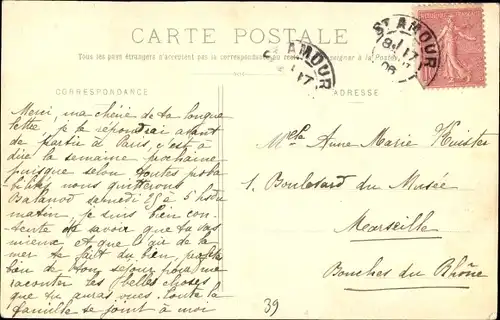 CARTE POSTALE
Tous les pays étrangers n'acceptent pas la correspondance au
à la Poste
CORRESPONDANCE
ADRESSE
ST AMOUR
17
ST AMOUR
17
06
Merci, ma chérie de ta longue
lettre, je te répondrai avant
de partir à Paris, c'est à
dire la semaine prochaine
puisque selon toutes proba
bilités nous quitterons
samedi 25 à 5 hs du
matin, je suis bien con-
tente de savoir que tu vas
mieux, et que l'air de la
mer te fait du bien, profite
bien de ton séjour pour me
raconter les belles choses
que tu auras vues. Toute la
famille se joint à moi
Melle Anne Marie
1, Boulevard du Musée
Marseille
Bouches du Rhône
39